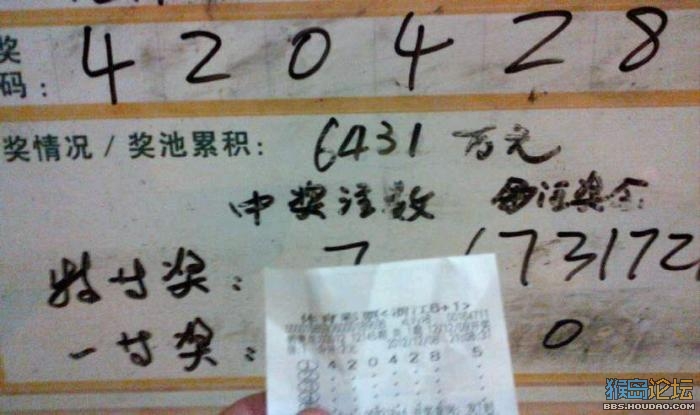 奖
码: 4 2 0 4 2 8
奖情况 / 奖池累积: 6431 万元
中奖注数 每注奖金
特等奖: 7 173172
一等奖: 0
体育彩票<浙江6+1>
4 2 0 4 2 8 5
猴岛论坛
BBS.HOUDAO.COM